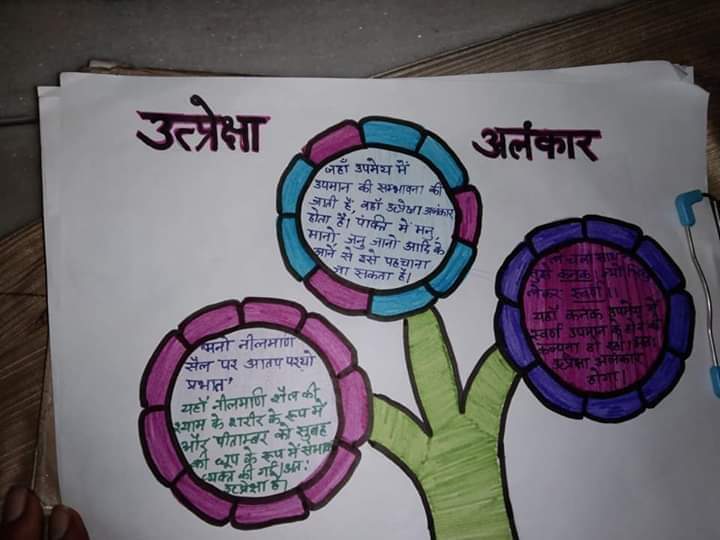 उत्प्रेक्षा अलंकार
जहाँ उपमेय में
उपमान की सम्भावना की
जाती है, वहाँ उत्प्रेक्षा अलंकार
होता है। पंक्ति में मनु,
मानो, जनु, जानो आदि के
आने से इसे पहचाना
जा सकता है।
"मनो नीलमणि
सैल पर आतप परयो
प्रभात"
यहाँ नीलमणि शैल की
श्याम के शरीर के रूप में
और पीताम्बर को सुबह
की धूप के रूप में
व्यक्त की गई। अतः
उत्प्रेक्षा है।
कनक
लेकर स्वर्ण।
यहाँ कनक उपमेय में
स्वर्ण उपमान के होने की
कल्पना हो रही। अतः
उत्प्रेक्षा अलंकार
होगा।